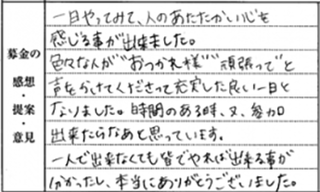 募金の
感想
・
提案
・
意見
一日やってみて、人のあたたかい心を
感じる事が出来ました。
色々な人が“おつかれ様”“頑張って”と
声をかけてくださって充実した良い一日と
なりました。時間のある時、又、参加
出来たらなあと思っています。
一人で出来なくても皆でやれば出来る事が
分かったし、本当にありがとうございました。